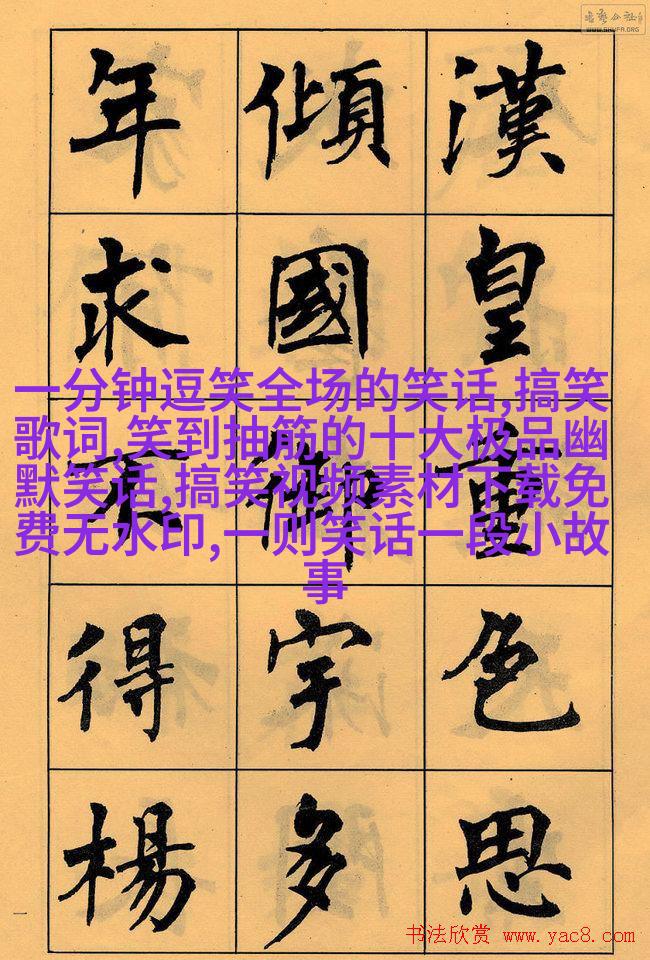 书艺公社
WWW.SHUFA.ORG
漢皇重色思
傾國御宇多
年求不得楊
一分钟逗笑全场的笑话,搞笑
歌词,笑到抽筋的十大极品幽
默笑话,搞笑视频素材下载免
费无水印,一则笑话一段小故
事
一
书法欣赏 www.yac8.com